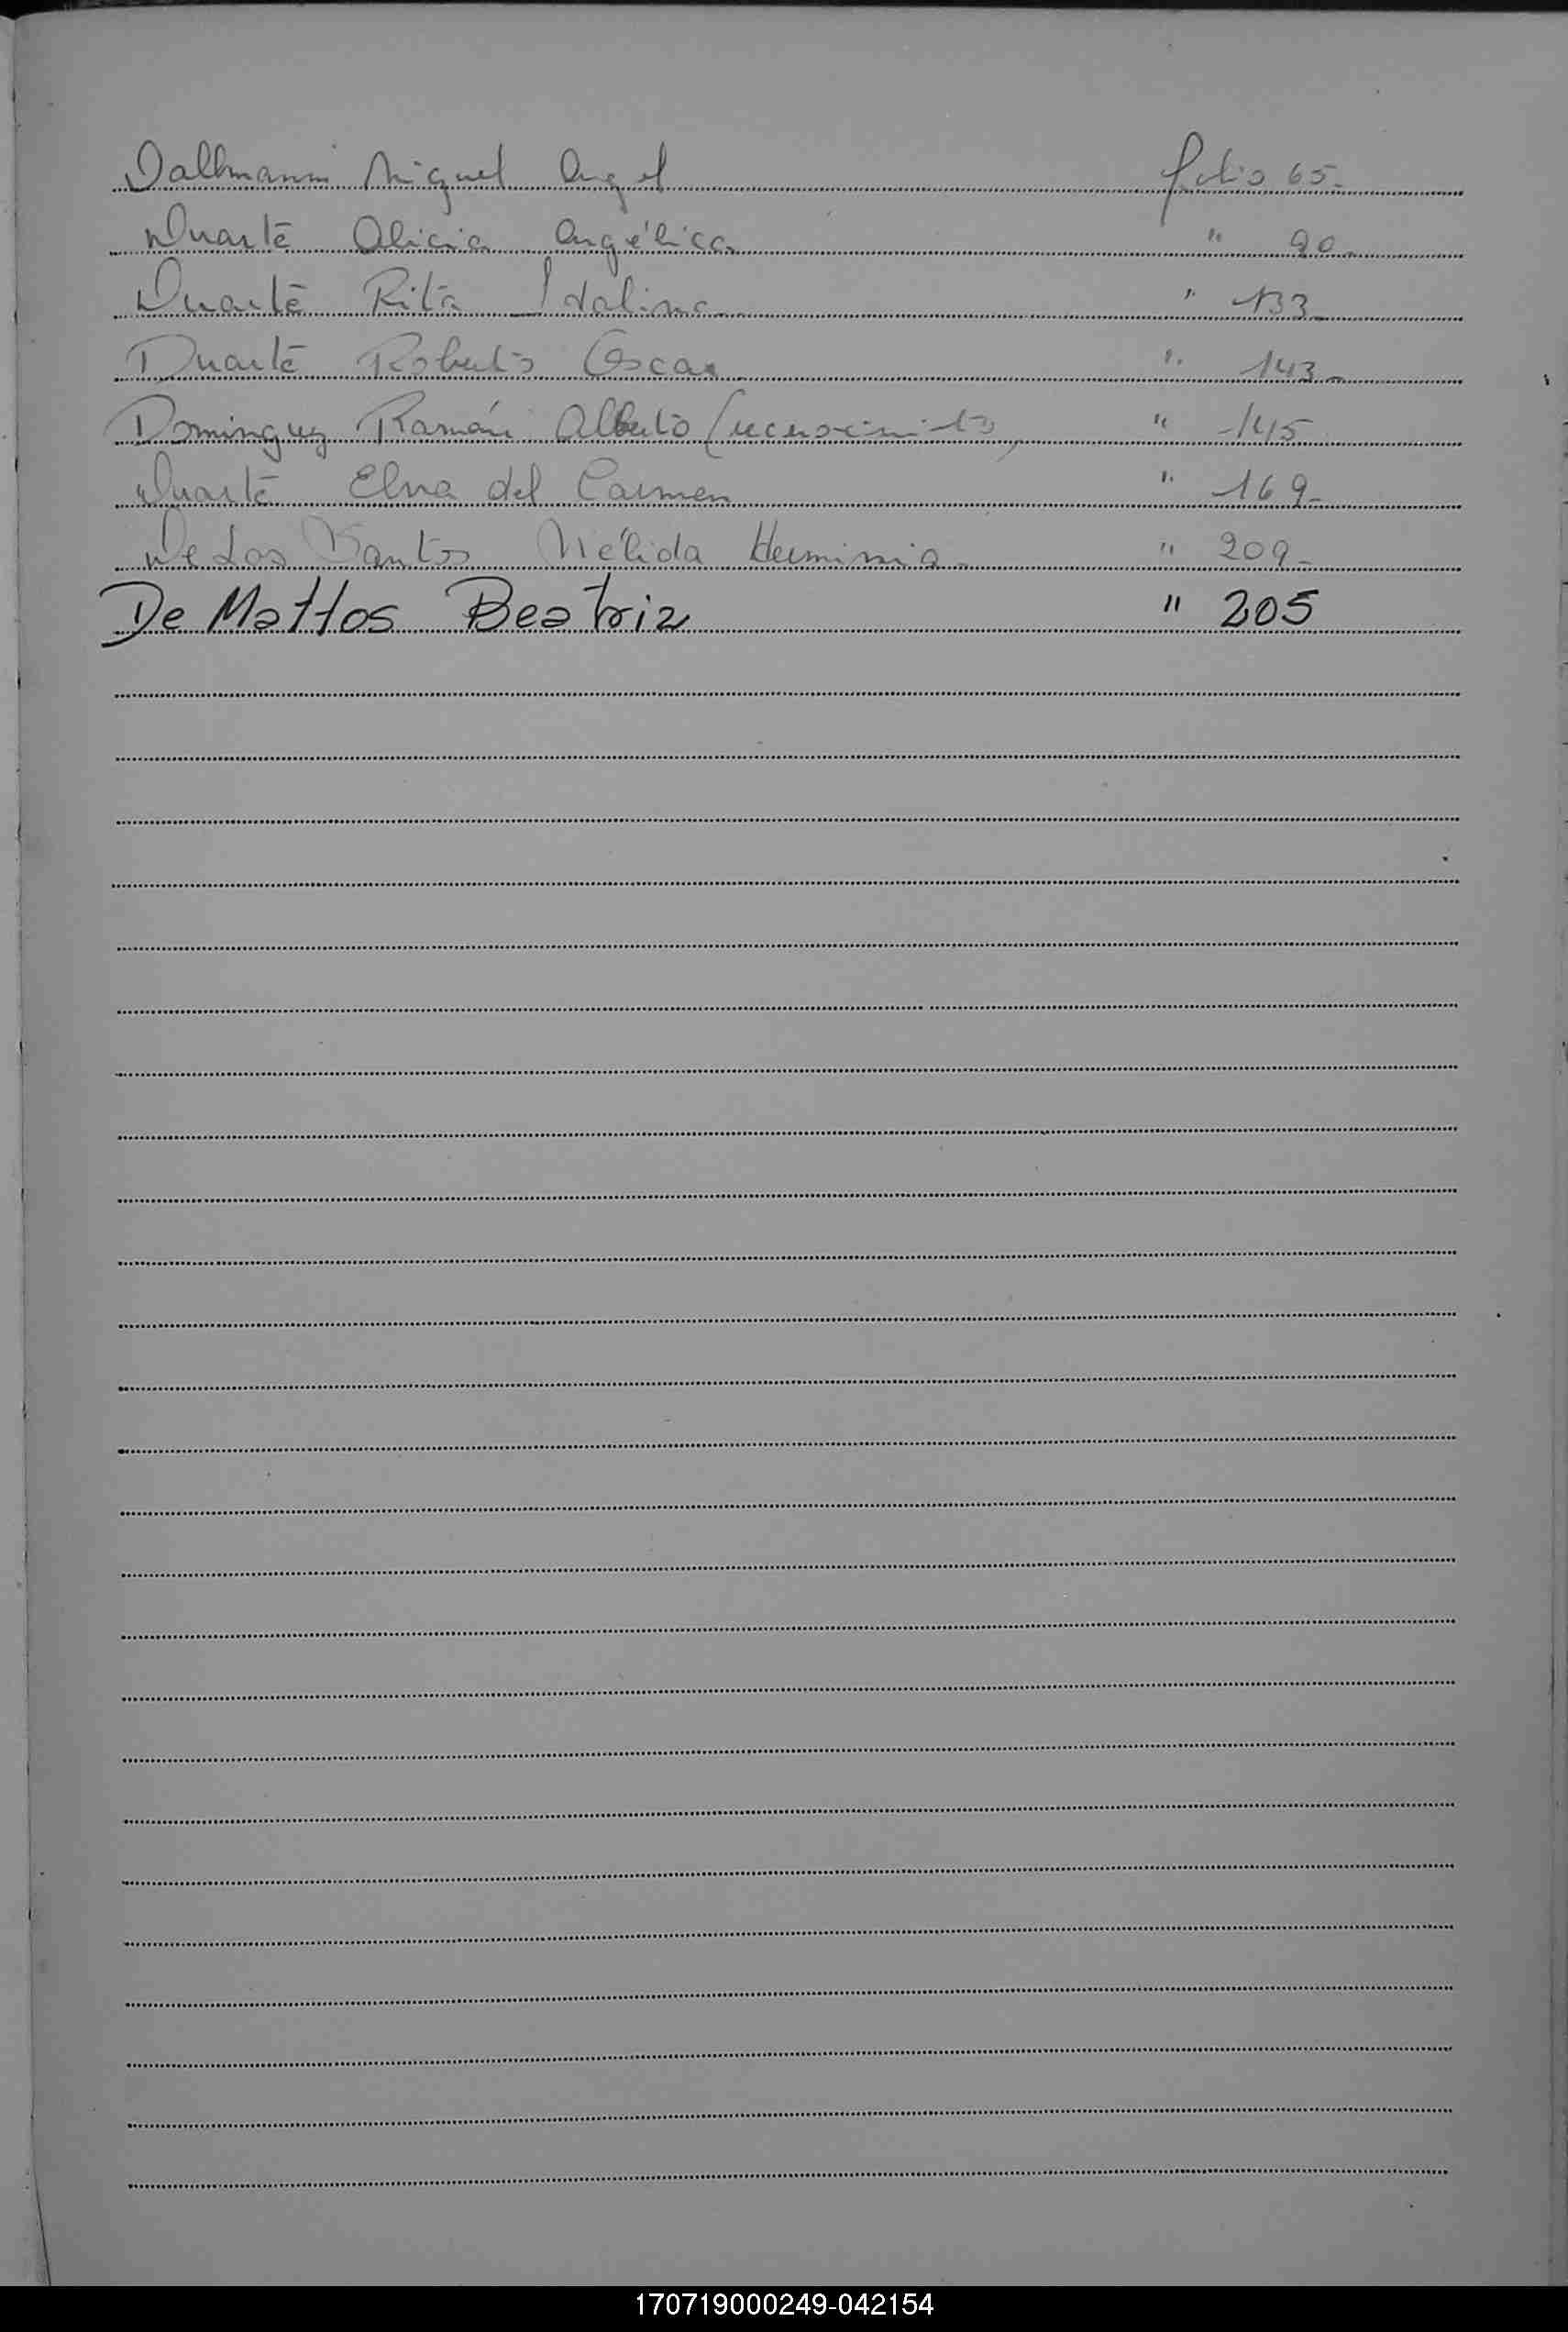 Dallmann Miguel Angel folio 65.
Duarte Alicia Angélica " 90.
Duarte Rita Idalina " 133.
Duarte Roberto Oscar " 143.
Dominguez Ramón Alberto (reconocimiento) " 145
Duarte Elva del Carmen " 169.
De Los Santos Nélida Herminia. " 209.
De Mattos Beatriz " 205
170719000249-042154